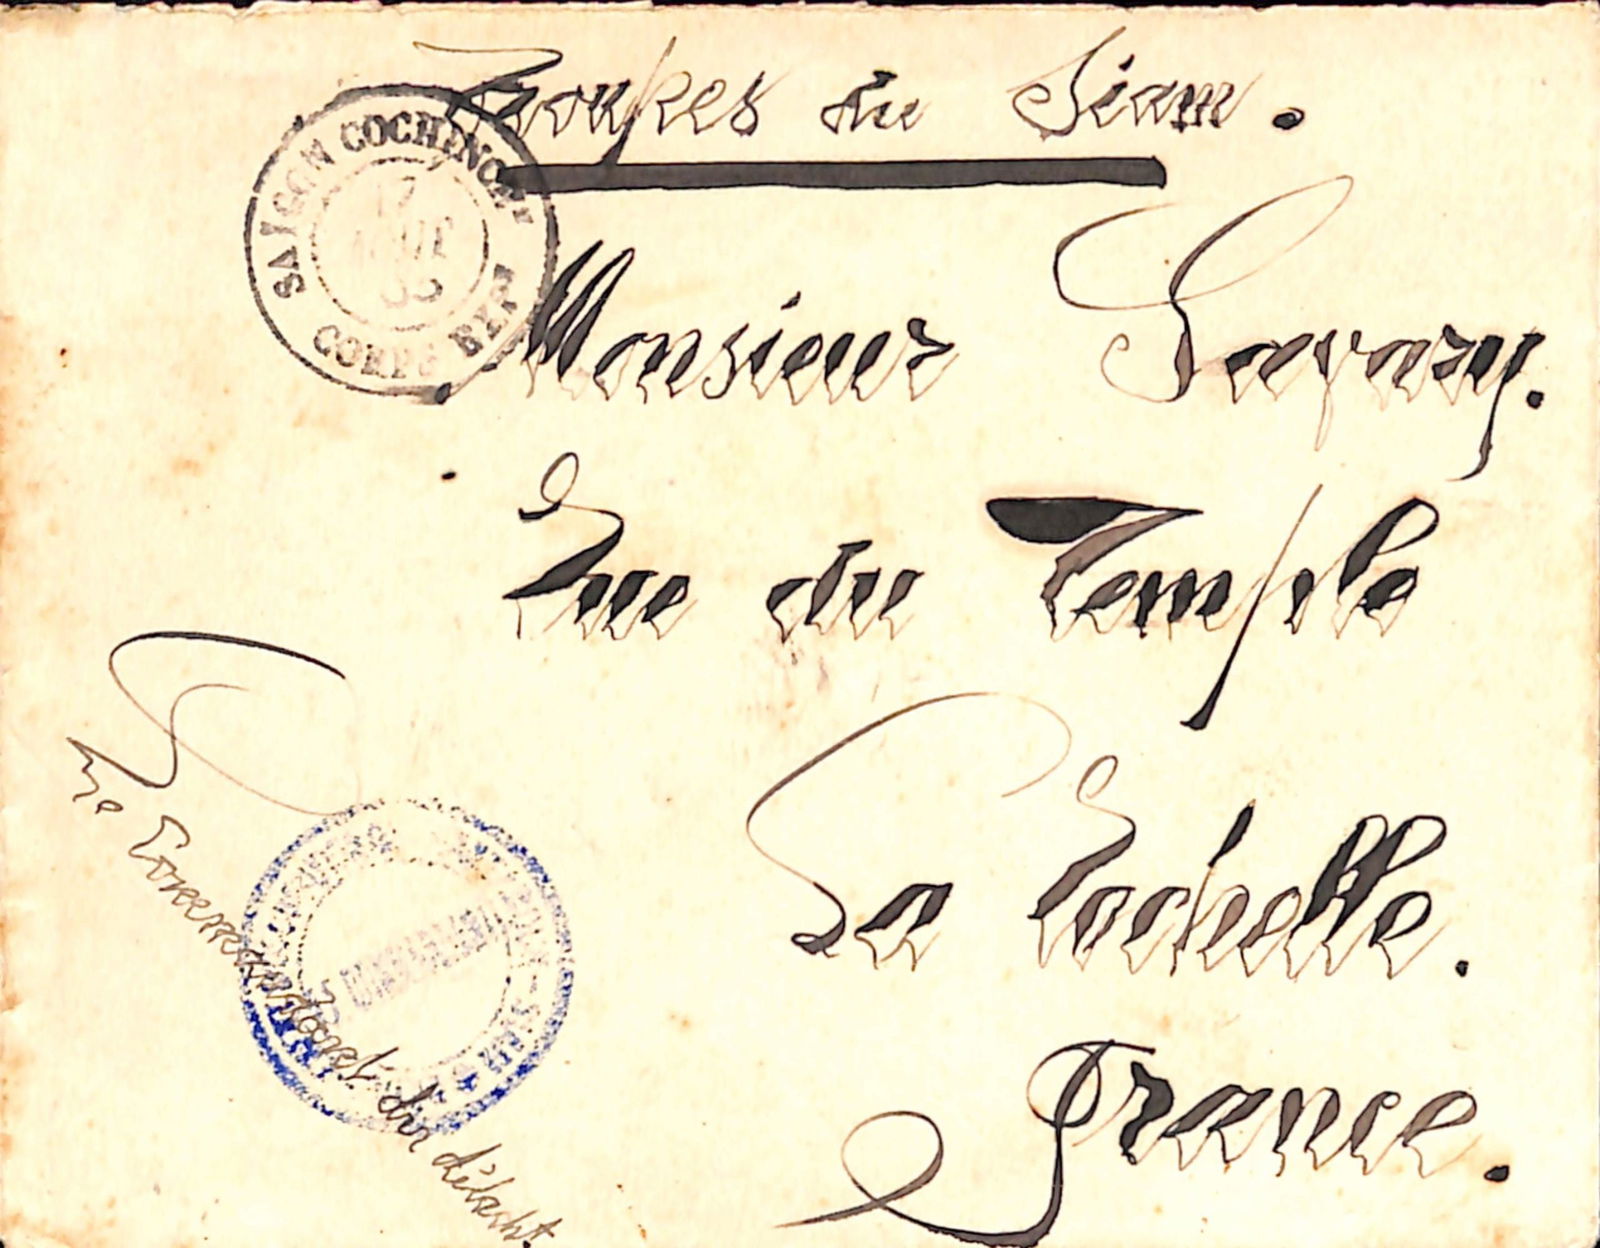 Troupes du Siam.
SAIGON COCHINCH
17
CORPS EXP
Monsieur Savary.
Rue du Temple
La Rochelle.
France.
Le Commandant du détacht.